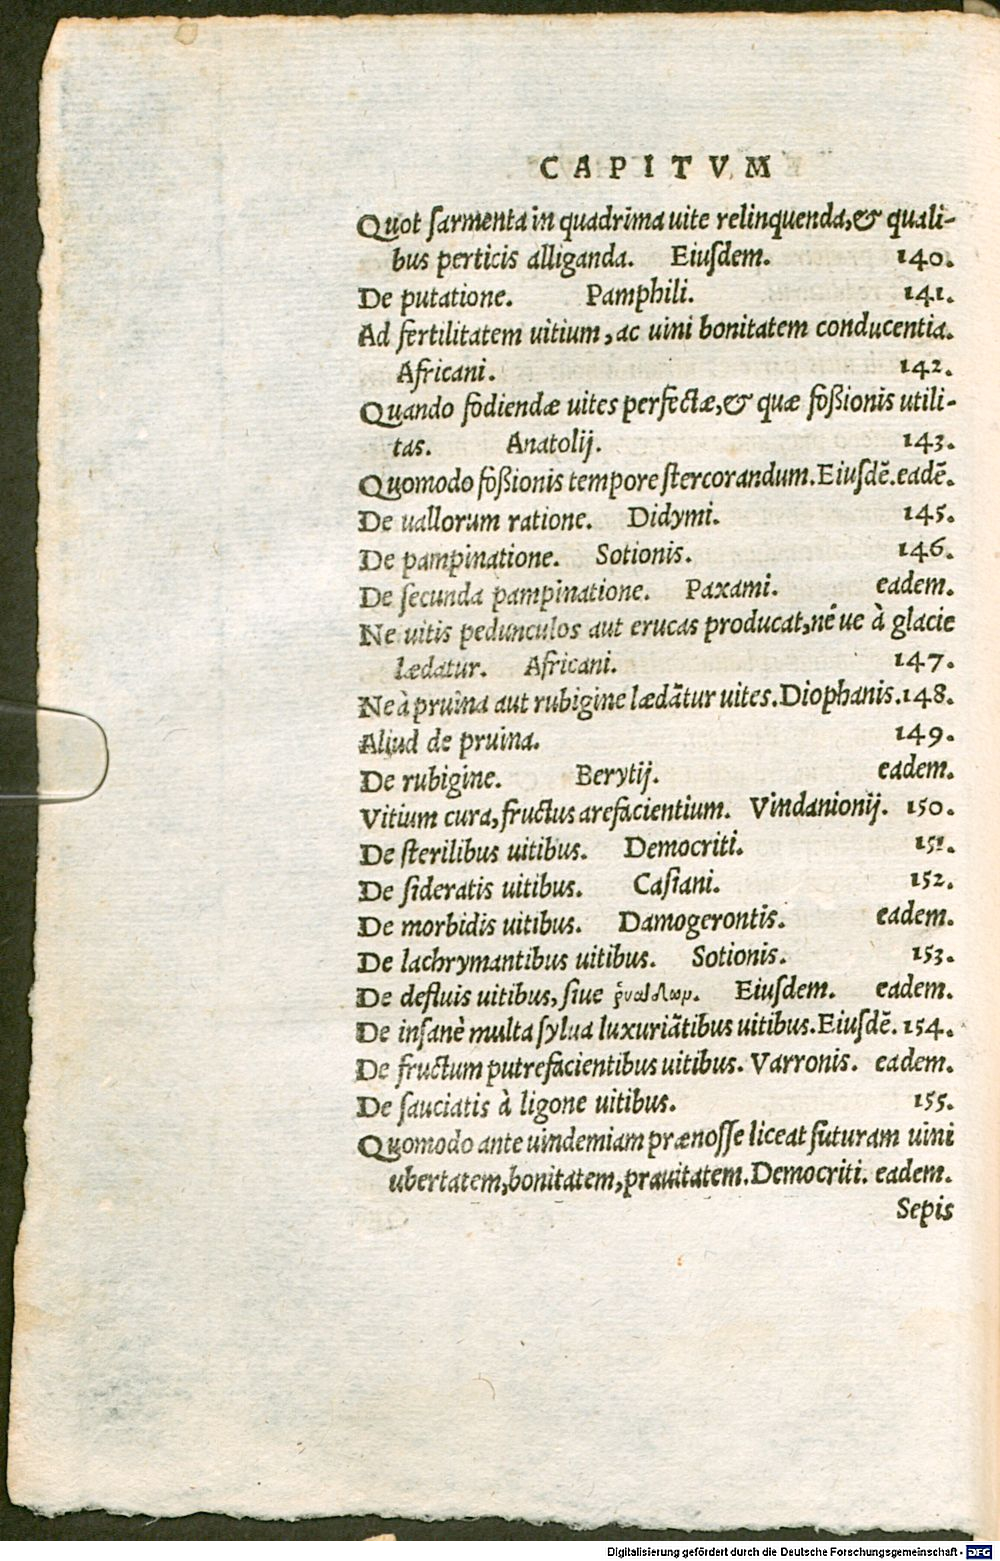 C A P I T V M
Quot sarmenta in quadrima uite relinquenda,& quali-
bus perticis alliganda. Eiusdem. 140.
De putatione. Pamphili. 141.
Ad fertilitatem uitium, ac uini bonitatem conducentia.
Africani. 142.
Quando fodiendæ uites perfectæ,& quæ foßionis utili-
tas. Anatolij. 143.
Quomodo foßionis tempore stercorandum. Eiusdẽ. eadẽ.
De uallorum ratione. Didymi. 145.
De pampinatione. Sotionis. 146.
De secunda pampinatione. Paxami. eadem.
Ne uitis pedunculos aut erucas producat, né ue à glacie
lædatur. Africani. 147.
Ne à pruina aut rubigine lædãtur uites. Diophanis. 148.
Aliud de pruina. 149.
De rubigine. Berytij. eadem.
Vitium cura, fructus arefacientium. Vindanionij. 150.
De sterilibus uitibus. Democriti. 151.
De sideratis uitibus. Casiani. 152.
De morbidis uitibus. Damogerontis. eadem.
De lachrymantibus uitibus. Sotionis. 153.
De defluis uitibus, siue Eiusdem. eadem.
De insanè multa sylua luxuriãtibus uitibus. Eiusdẽ. 154.
De fructum putrefacientibus uitibus. Varronis. eadem.
De sauciatis à ligone uitibus. 155.
Quomodo ante uindemiam prænosse liceat futuram uini
ubertatem, bonitatem, prauitatem. Democriti. eadem.
Sepis
Digitalisierung gefördert durch die Deutsche Forschungsgemeinschaft - DFG